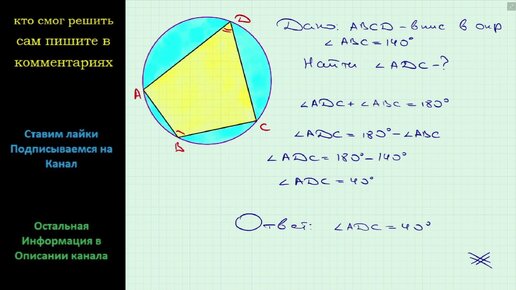 кто смог решить
сам пишите в
комментариях
Ставим лайки
Подписываемся на
Канал
Остальная
Информация в
Описании канала
D
A
B
C
Дано: ABCD - впис в окр
∠ ABC = 140°
Найти ∠ ADC - ?
∠ADC + ∠ABC = 180°
∠ADC = 180° - ∠ABC
∠ADC = 180° - 140°
∠ADC = 40°
Ответ: ∠ADC = 40°